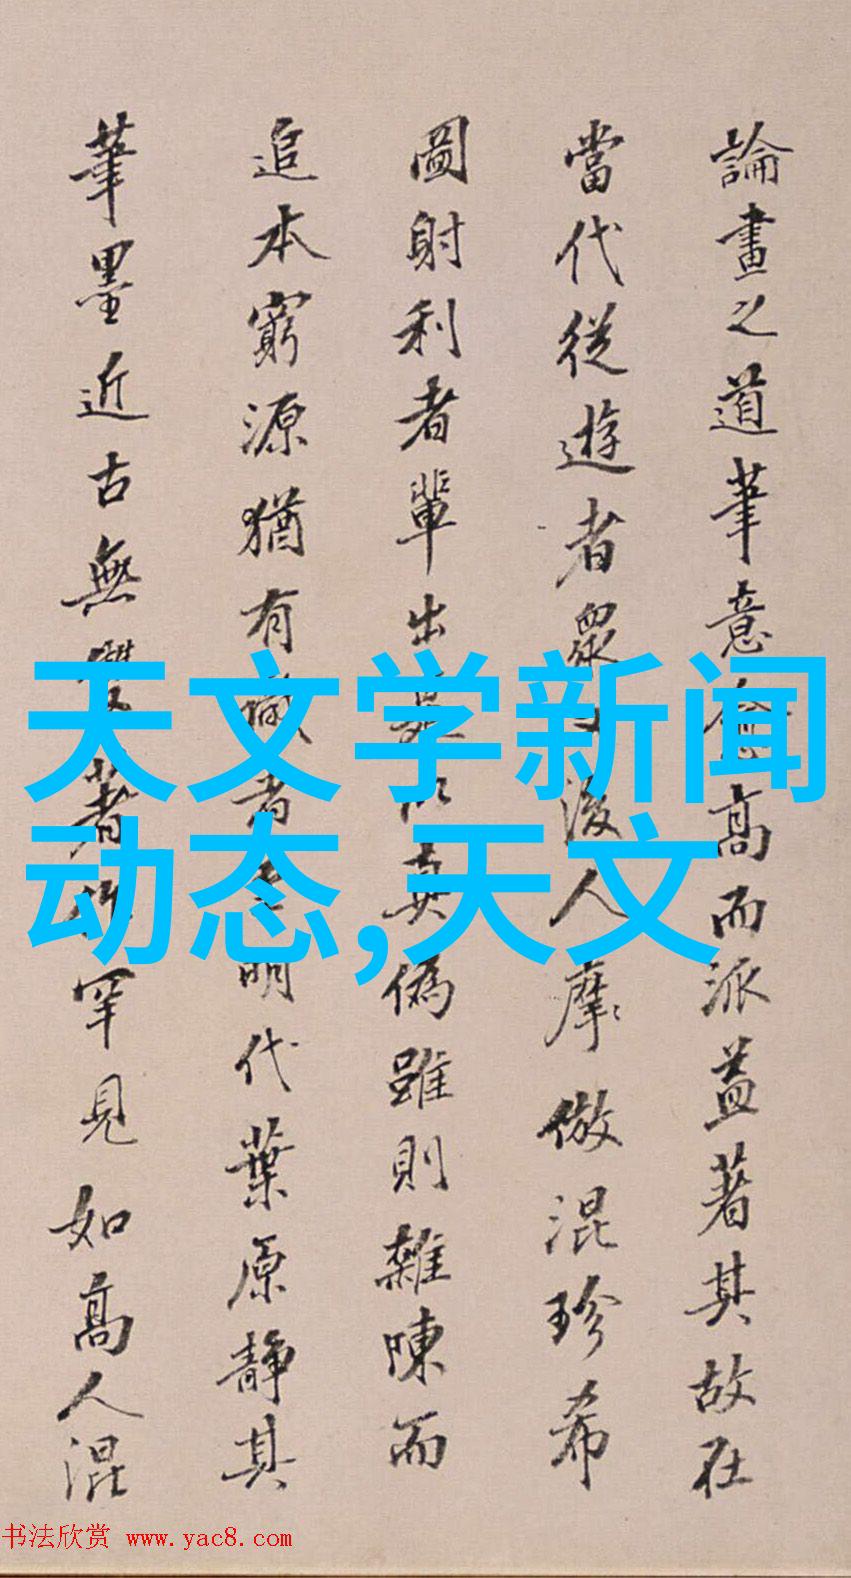 論畫之道筆意愈高而派益著其故在
當代從遊者眾後人摩倣混珍希
圖射利者輩出是以真偽雖則雜陳而
追本窮源猶有識者明代葉原靜其
筆墨近古無雙著作罕見如高人混
天文学新闻
动态,天文
书法欣赏 www.yac8.com